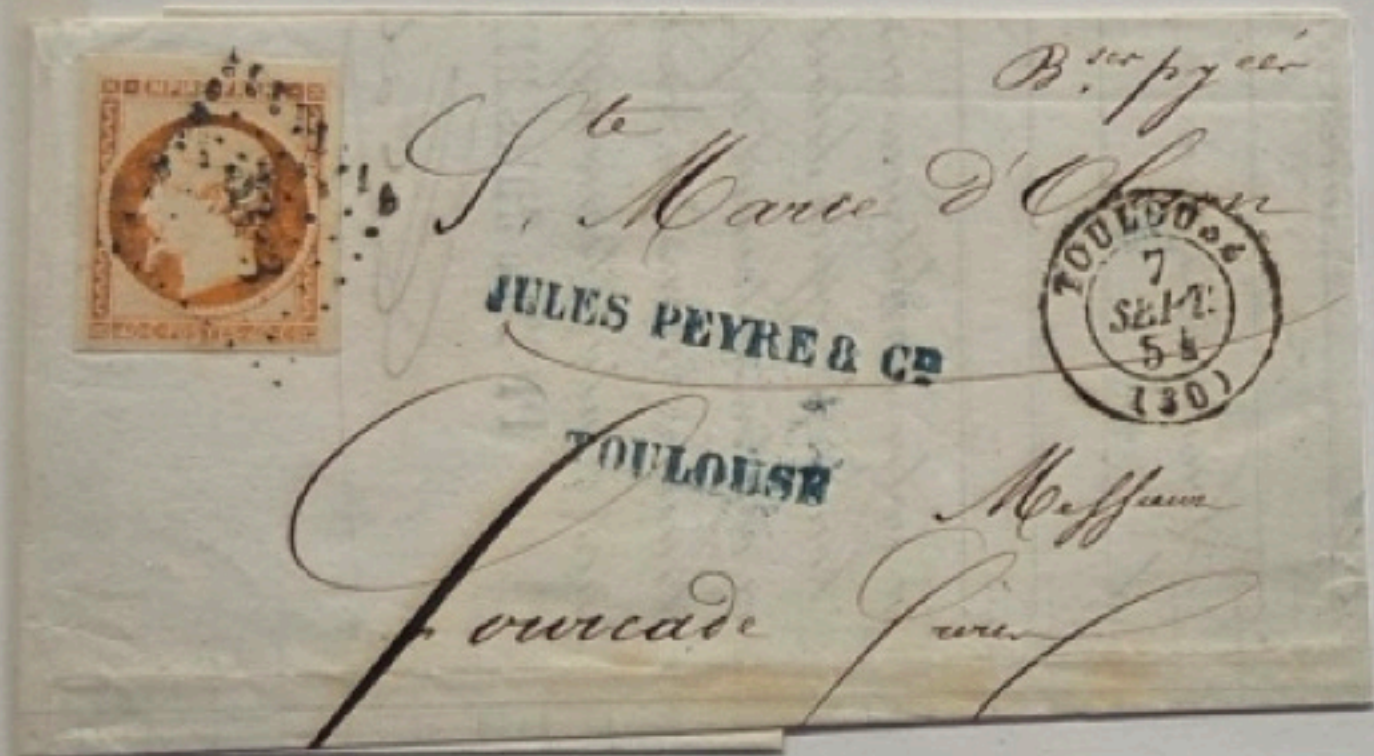 B.ses pyrées
Ste Marie d'Oloron
TOULOUSE
7
SEPT.
54
(30)
JULES PEYRE & CIE
TOULOUSE
Messieurs
Fourcade frères
40 C POSTES 40 C